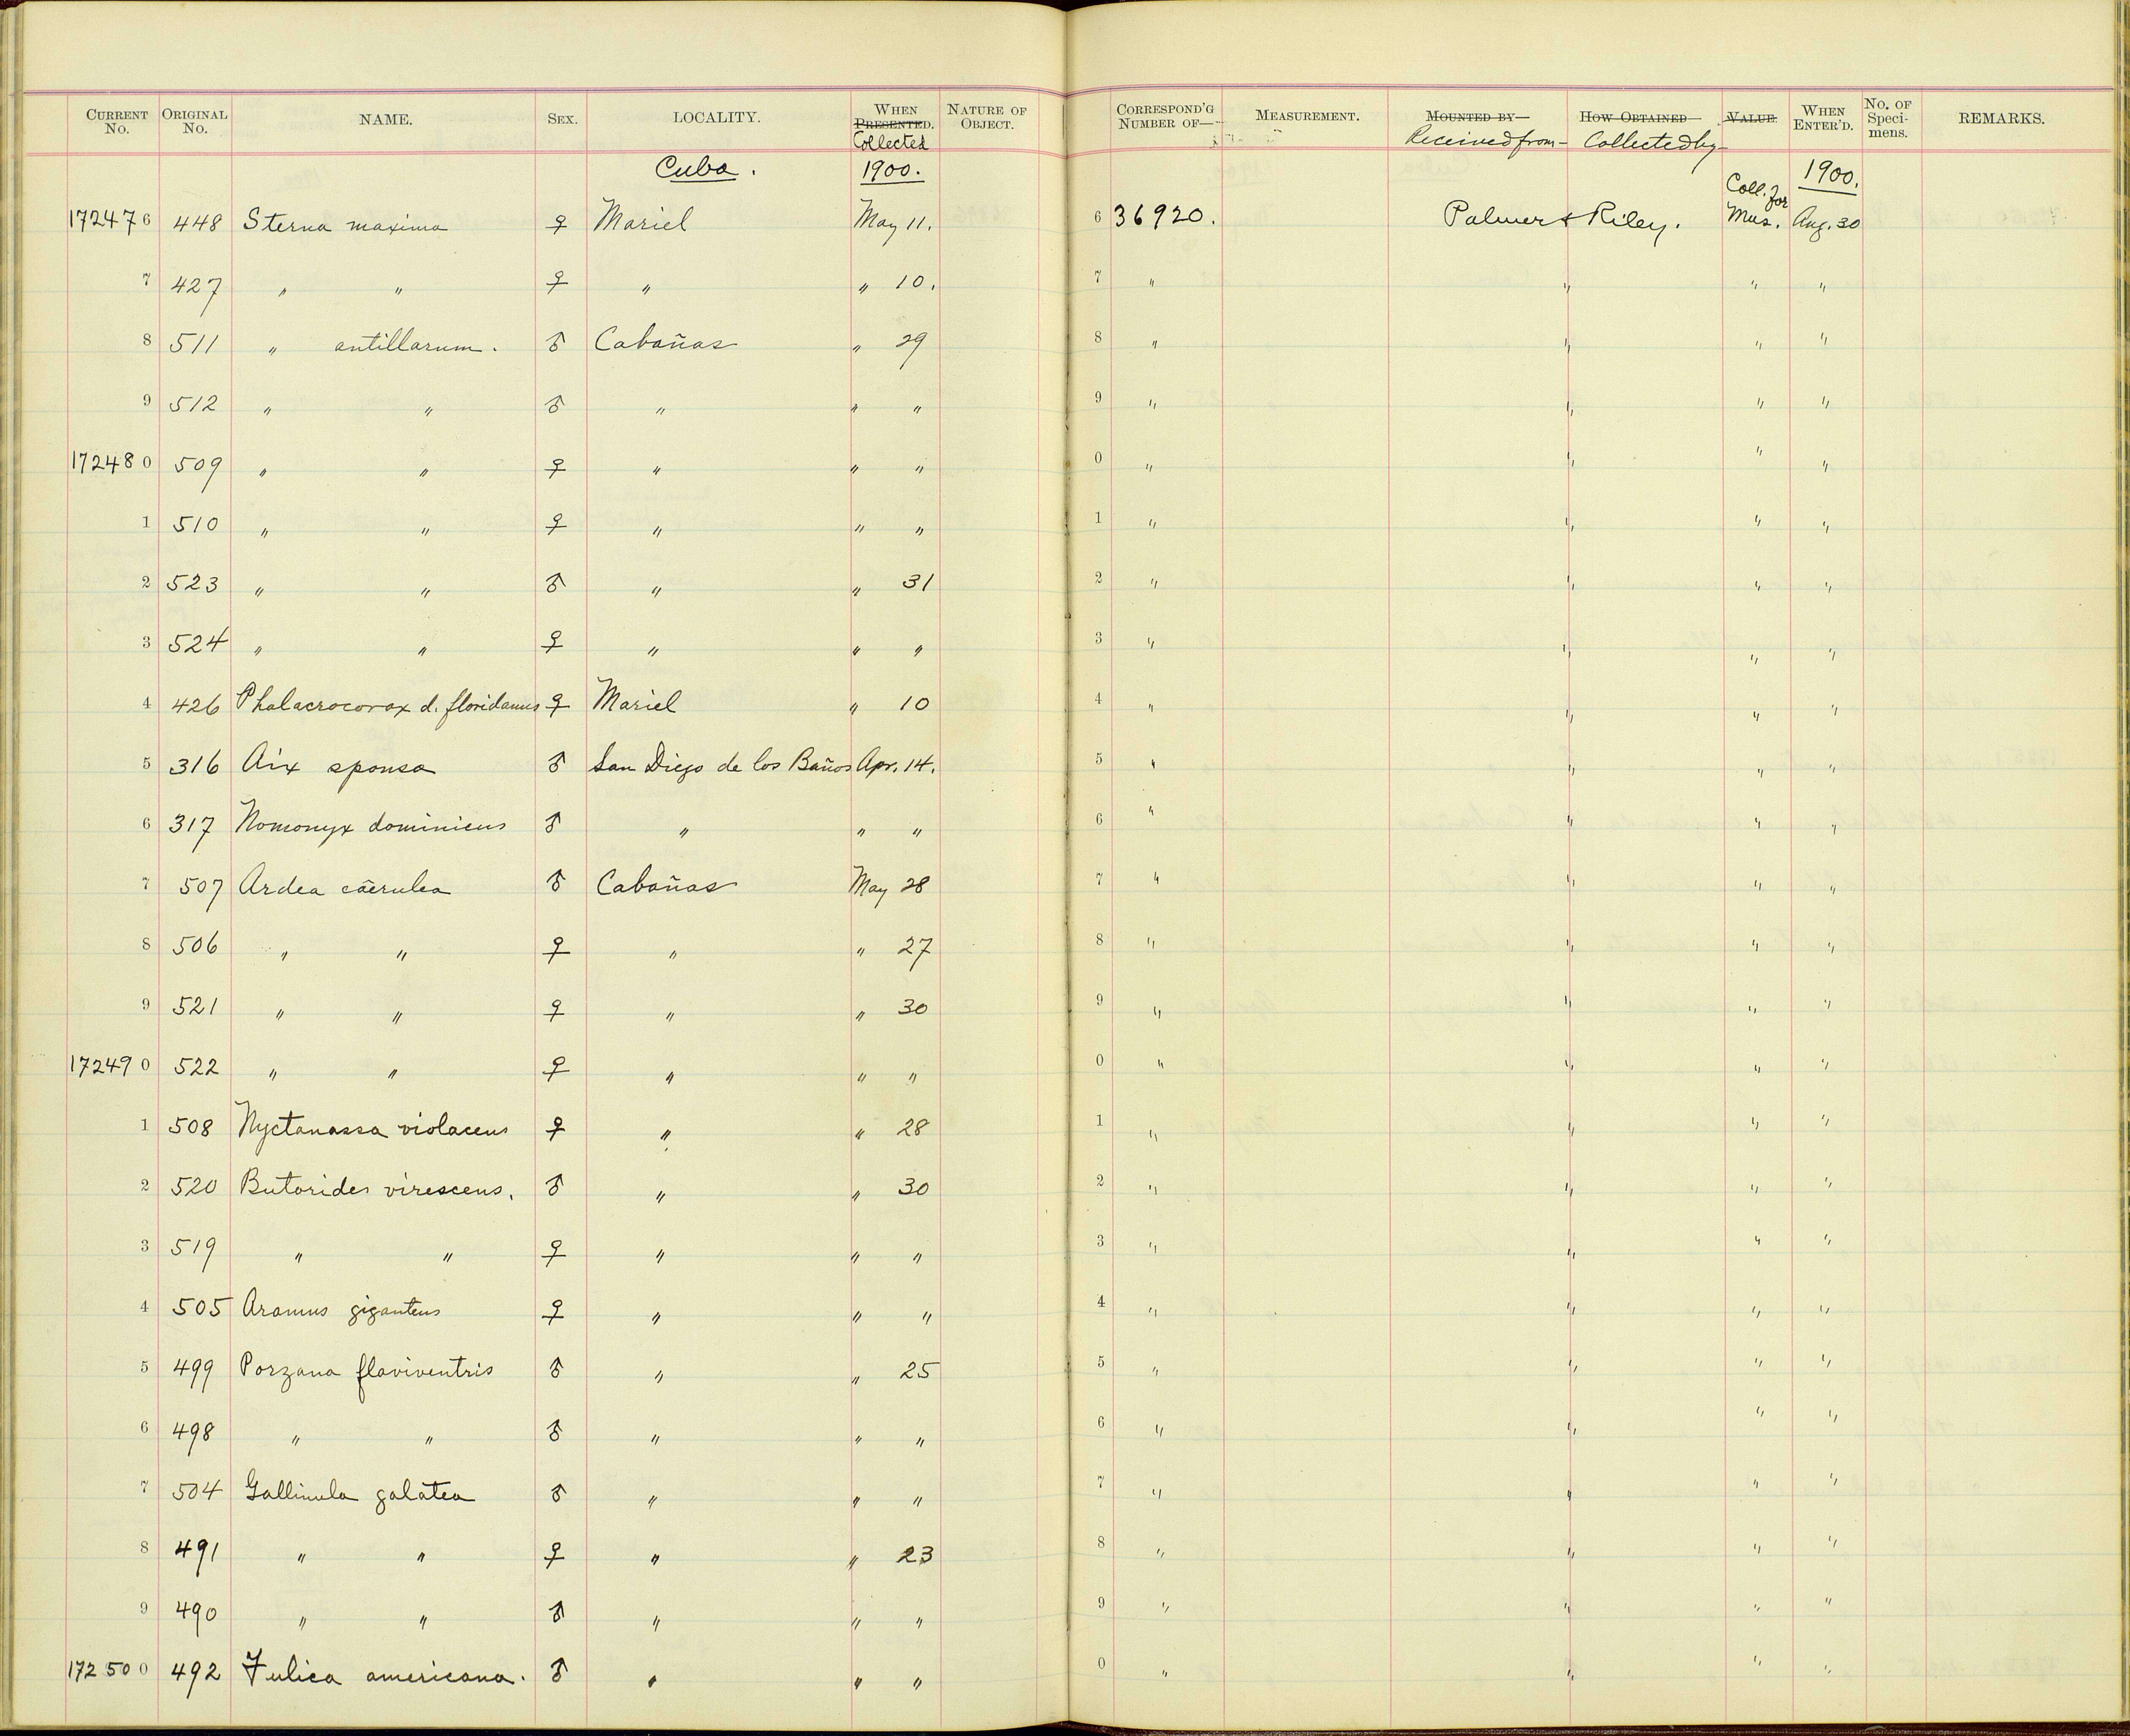 CURRENT No. ORIGINAL No. NAME. SEX. LOCALITY. WHEN PRESENTED. Collected NATURE OF OBJECT. CORRESPOND'G NUMBER OF— MEASUREMENT. MOUNTED BY— Received from— HOW OBTAINED— Collected by— VALUE WHEN ENTER'D. No. OF Speci- mens. REMARKS.
Cuba. 1900. 1900.
172476 448 Sterna maxima ♀ Mariel May 11. 6 36920. Palmer & Riley. Coll. for Mus. Aug. 30
7 427 " " ♀ " " 10. 7 " " " "
8 511 " antillarum. ♂ Cabañas " 29 8 " " " "
9 512 " " ♂ " " " 9 " " " "
172480 509 " " ♀ " " " 0 " " " "
1 510 " " ♀ " " " 1 " " " "
2 523 " " ♂ " " 31 2 " " " "
3 524 " " ♀ " " " 3 " " " "
4 426 Phalacrocorax d. floridanus ♀ Mariel " 10 4 " " " "
5 316 Aix sponsa ♂ San Diego de los Baños Apr. 14. 5 " " " "
6 317 Nomonyx dominicus ♂ " " " 6 " " " "
7 507 Ardea cærulea ♂ Cabañas May 28 7 " " " "
8 506 " " ♀ " " 27 8 " " " "
9 521 " " ♀ " " 30 9 " " " "
172490 522 " " ♀ " " " 0 " " " "
1 508 Nyctanassa violaceus ♀ " " 28 1 " " " "
2 520 Butorides virescens. ♂ " " 30 2 " " " "
3 519 " " ♀ " " " 3 " " " "
4 505 Aramus giganteus ♀ " " " 4 " " " "
5 499 Porzana flaviventris ♂ " " 25 5 " " " "
6 498 " " ♂ " " " 6 " " " "
7 504 Gallinula galatea ♂ " " " 7 " " " "
8 491 " " ♀ " " 23 8 " " " "
9 490 " " ♂ " " " 9 " " " "
172500 492 Fulica americana. ♂ " " " 0 " " " "